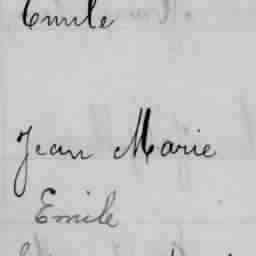 Emile
Jean Marie
Emile